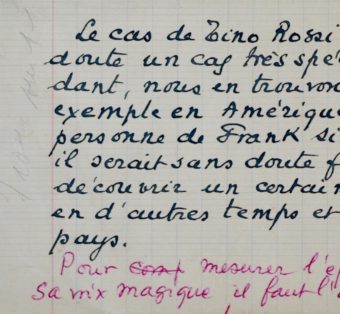 Le cas de Tino Rossi
doute un cas très spé
dant, nous en trouvon
exemple en Amérique
personne de Frank Si
il serait sans doute f
découvrir un certai
en d'autres temps et
pays.
Pour mesurer l'e
sa voix magique, il faut l'